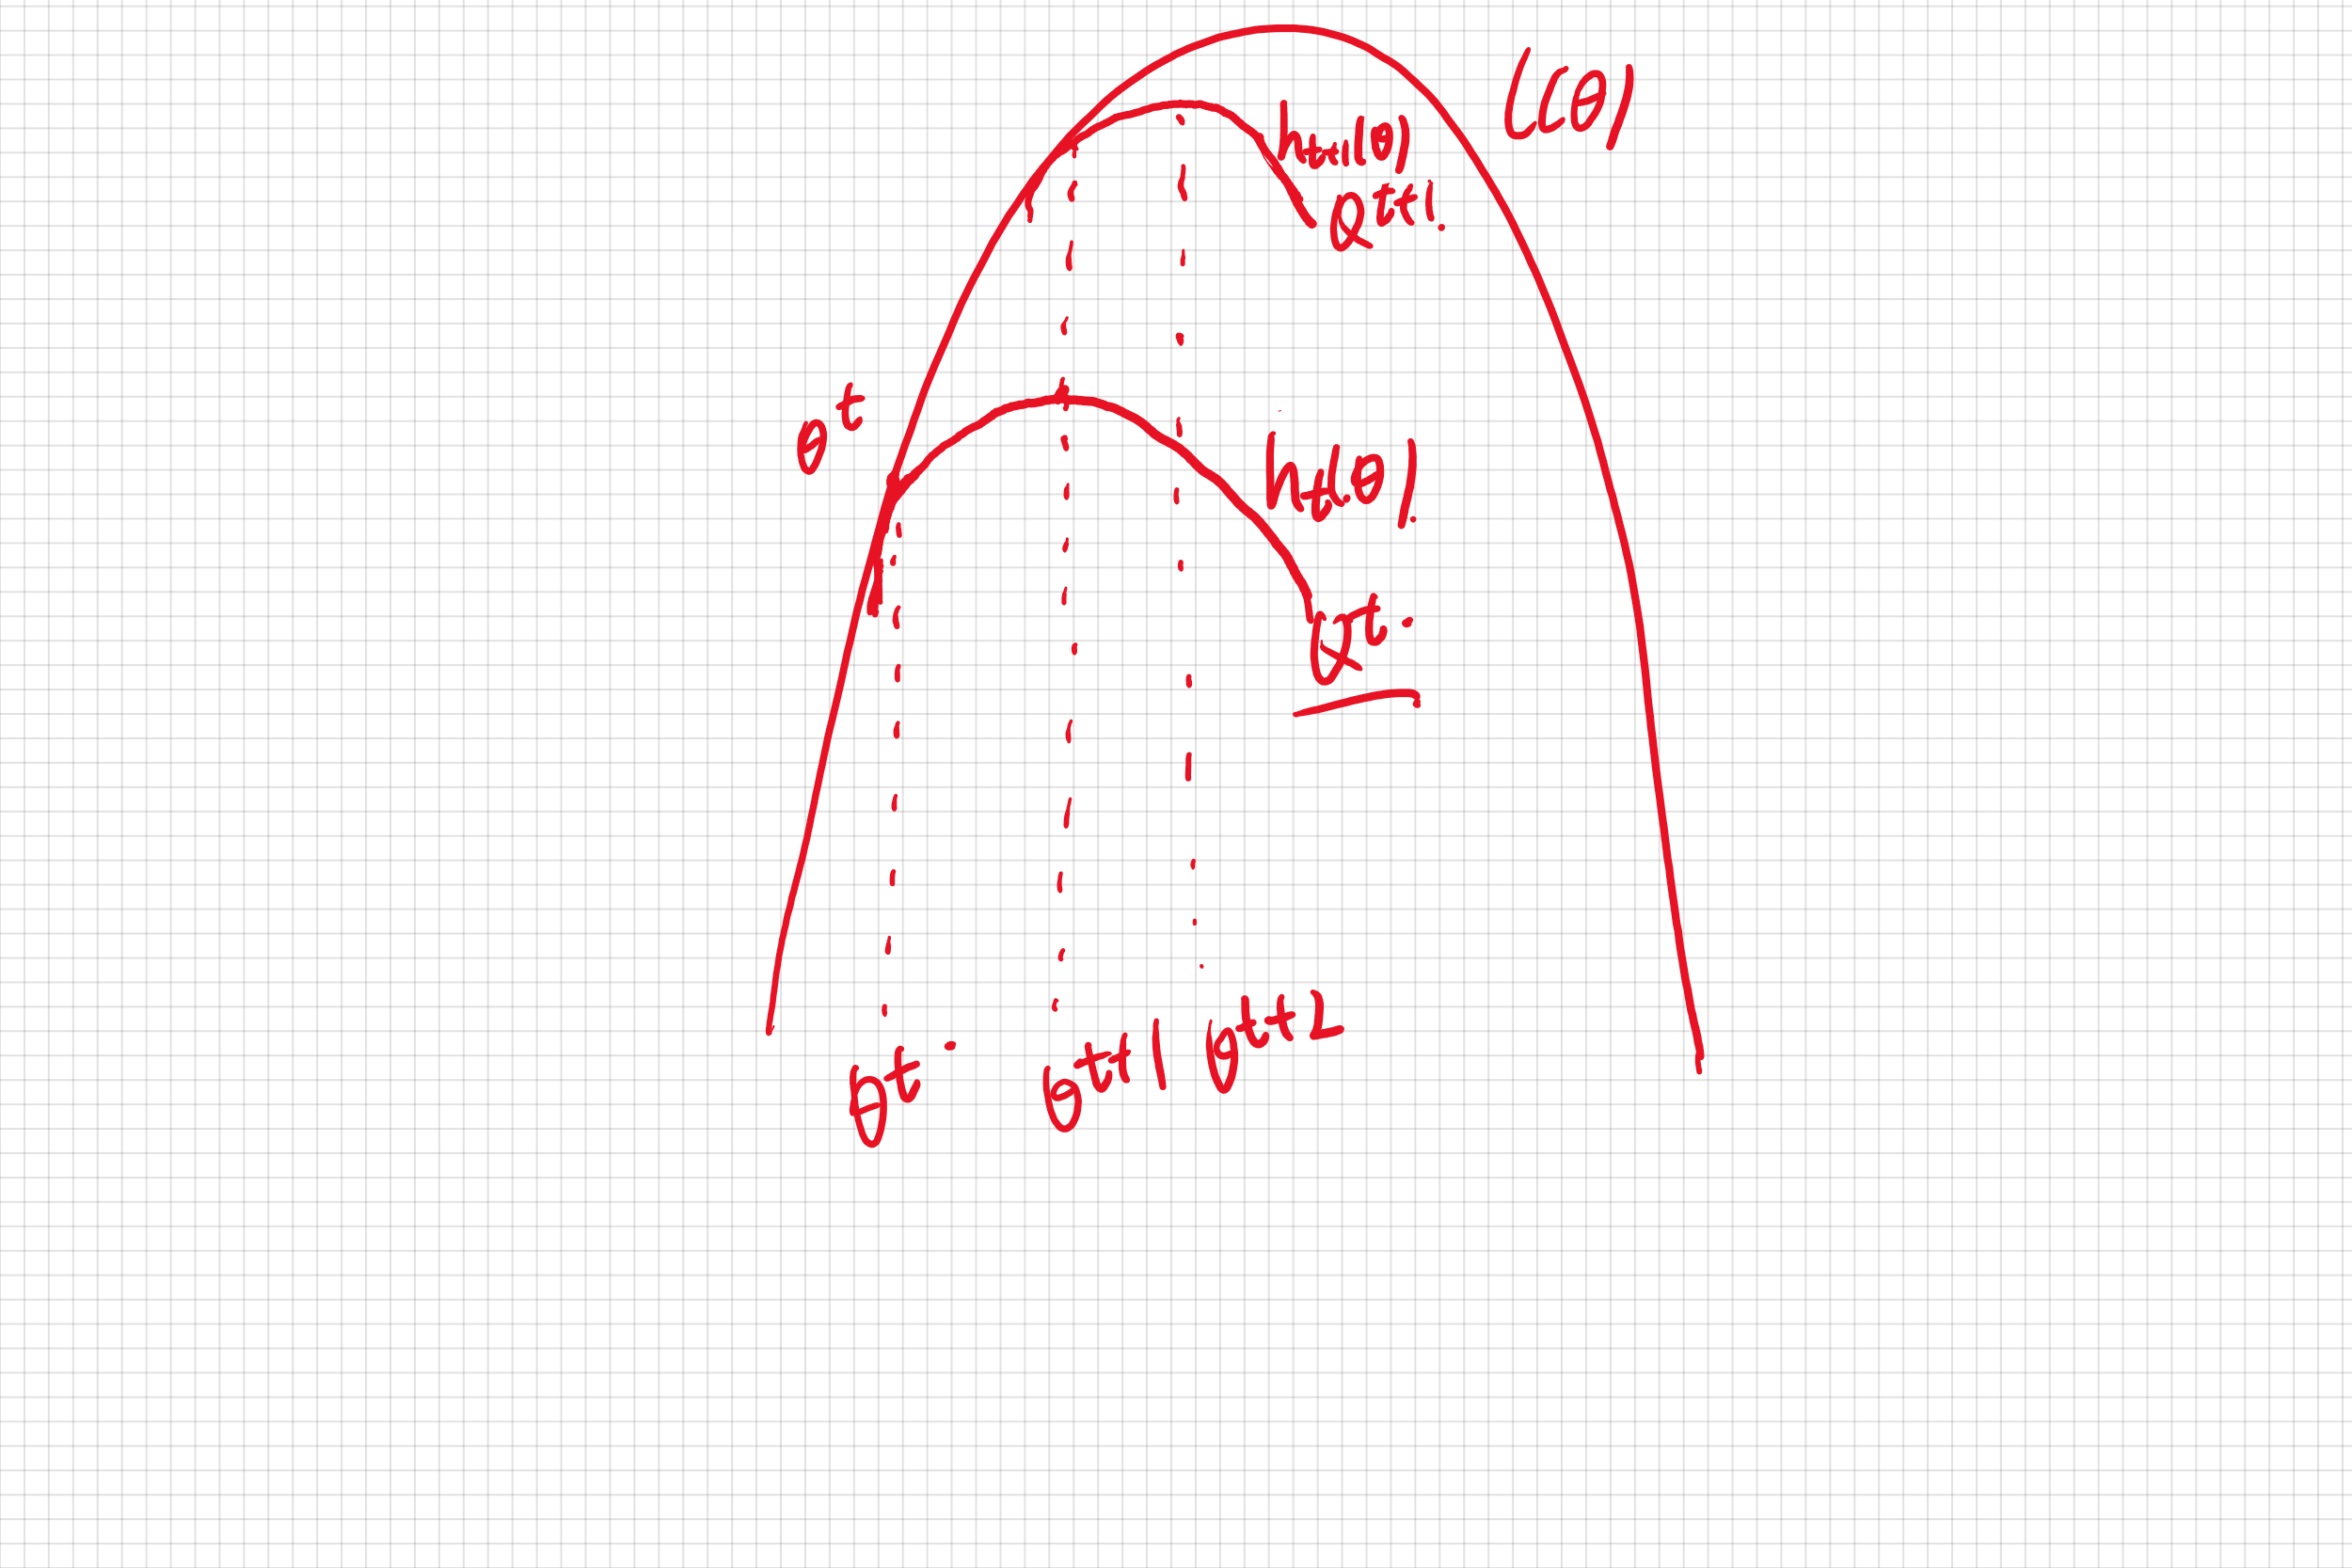 l(θ)
h_{t+1}(θ)
Q^{t+1}.
θ^t
h_t(θ).
Q^t.
θ^t.
θ^{t+1}
θ^{t+2}